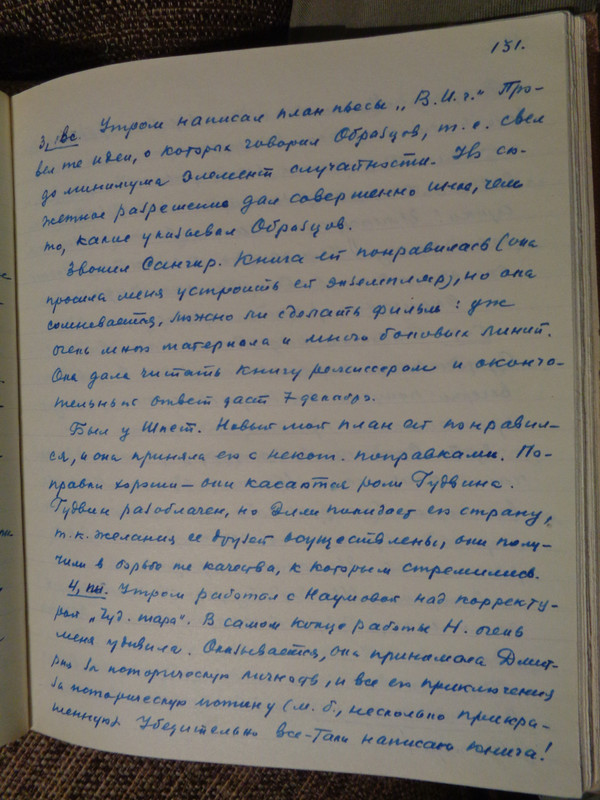 131.
3, вс. Утром написал план пьесы „В.И.г." Про-
вел те идеи, о которых говорил Образцов, т.е. свел
до минимума элемент случайности. Но сю-
жетное разрешение дал совершенно иное, чем
то, какие указывал Образцов.
Звонил Санчир. Книга ей понравилась (она
просила меня устроить ей экземпляр), но она
сомневается, можно ли сделать фильм: уж
очень много материала и много боковых линий.
Она дала читать книгу режиссерам и оконча-
тельный ответ даст 7 декабря.
Был у Шпет. Новый мой план ей понравил-
ся, и она приняла его с некот. поправками. По-
правки хороши — они касаются роли Гудвина.
Гудвин разоблачен, но Элли покидает его страну,
т.к. желания ее друзей осуществлены, они полу-
чили в борьбе те качества, к которым стремились.
4, пн. Утром работал с Наумовой над корректу-
рой „Чуд. шара". В самом конце работы Н. очень
меня удивила. Оказывается, она принимала Дмит-
рия за историческую личность, и все его приключения
за историческую истину (м.б., несколько прикра-
шенную). Убедительно все-таки написана книга!